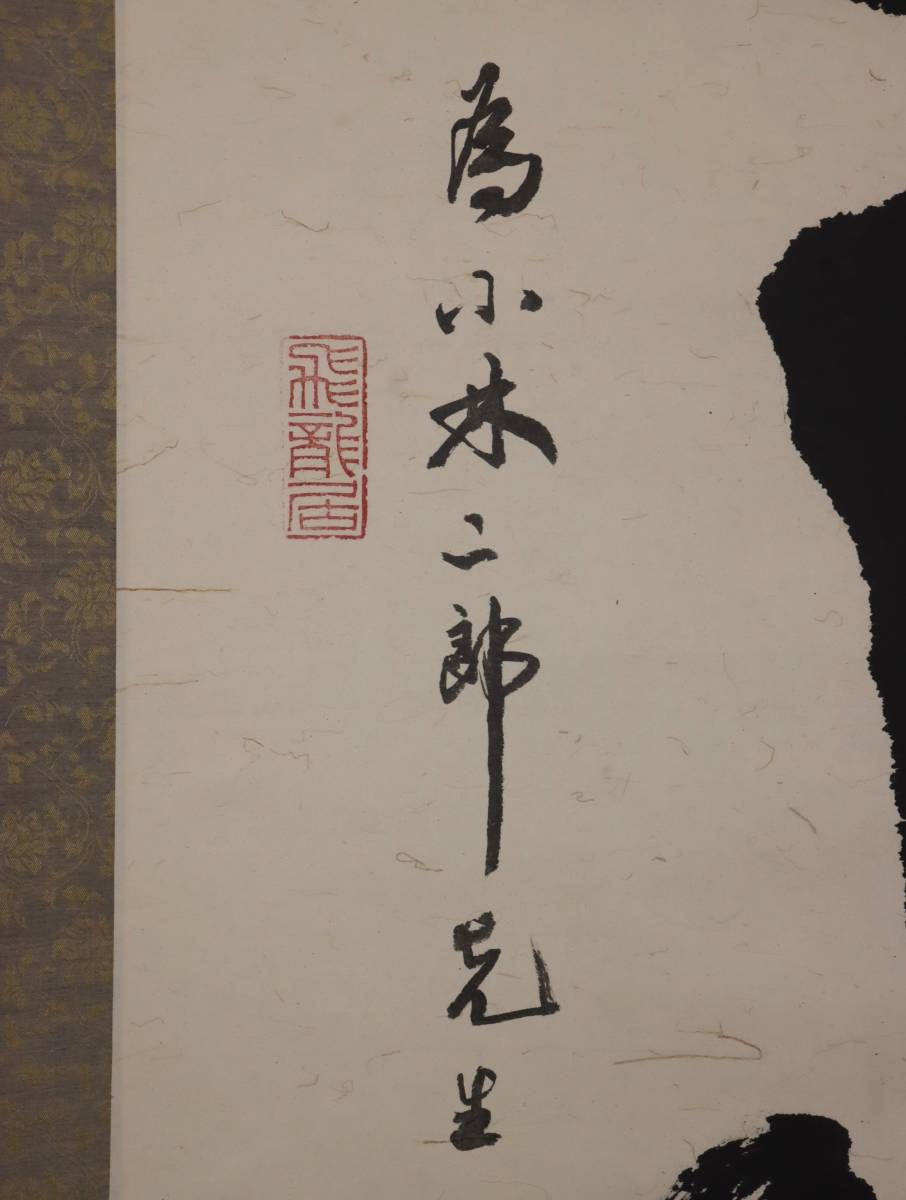 為小林二郎先生
飛龍居